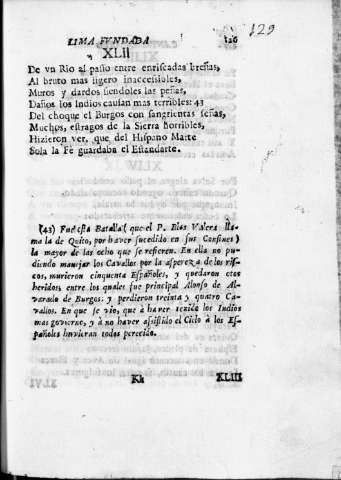 129
LIMA FVNDADA
126
XLII
De vn Rio al passo entre enriscadas breñas,
Al bruto mas ligero inaccessibles,
Muros y dardos siendoles las peñas,
Daños los Indios causan mas terribles: 43
Del choque el Burgos con sangrientas señas,
Muchos, estragos de la Sierra horribles,
Hizieron ver, que del Hispano Marte
Sola la Fè guardaba el Estandarte.
(43) Fuè esta Batalla (que el P. Blas Valera lla-
ma la de Quito, por haver sucedido en sus Confines)
la mayor de las ocho que se refieren. En ella no pu-
diendo manejar los Cavallos por la aspereza de los ris-
cos, murieron cinquenta Españoles, y quedaron otos
heridos; entre los quales fue principal Alonso de Al-
varado de Burgos: y perdieron treinta y quatro Ca-
vallos. En que se vio, que à haver tenido los Indios
mas govierno, y à no haver assistido el Cielo à los Es-
pañoles huvieran todos perecido.
Kk
XLIII